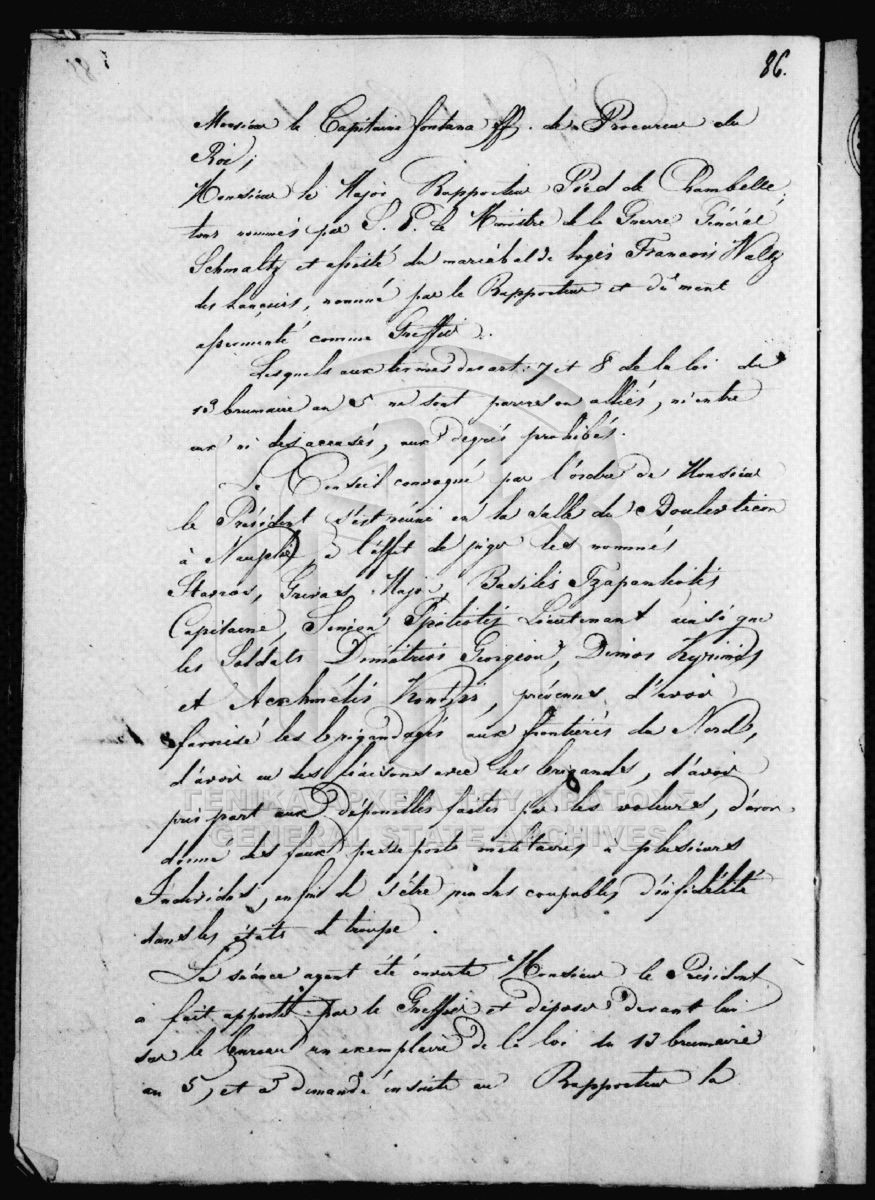 86.
Monsieur le Capitaine Fontana ff. de Procureur du
Roi;
Monsieur le Major Rapporteur Pied de Chambelle,
tous nommés par S. E. le Ministre de la Guerre Général
Schmaltz et assisté du maréchal de logis Francois Waltz
des lanciers, nommé par le Rapporteur et dûment
assermenté comme Greffier.
Lesquels aux termes des art: 7 et 8 de la loi du
13 brumaire an 5 ne sont parens ou alliés, ni entre
eux ni des accusés, aux degrés prohibés.
Le Conseil convoqué par l'ordre de Monsieur
le Président s'est réuni en la salle du Boulevticon
à Nauplie, à l'effet de juger les nommés
Stavros Grivas, Major, Basilis
Capitaine, Simeon Lieutenant ainsi que
les Soldats Dimitrios Georgiou, Dimos
et prévenus d'avoir
favorisé les brigandages aux frontières du Nord,
d'avoir eu des liaisons avec les brigands, d'avoir
pris part aux dépouilles faites par les voleurs, d'avoir
donné des faux passeports militaires à plusieurs
Individus, enfin de s'être rendus coupables d'infidélité
dans les états de troupe.
La séance ayant été ouverte Monsieur le Président
a fait apporter par le Greffier et déposer devant lui
sur le bureau un exemplaire de la loi du 13 brumaire
an 5, et a demandé ensuite au Rapporteur la
ΓΕΝΙΚΑ ΑΡΧΕΙΑ ΤΟΥ ΚΡΑΤΟΥΣ
GENERAL STATE ARCHIVES